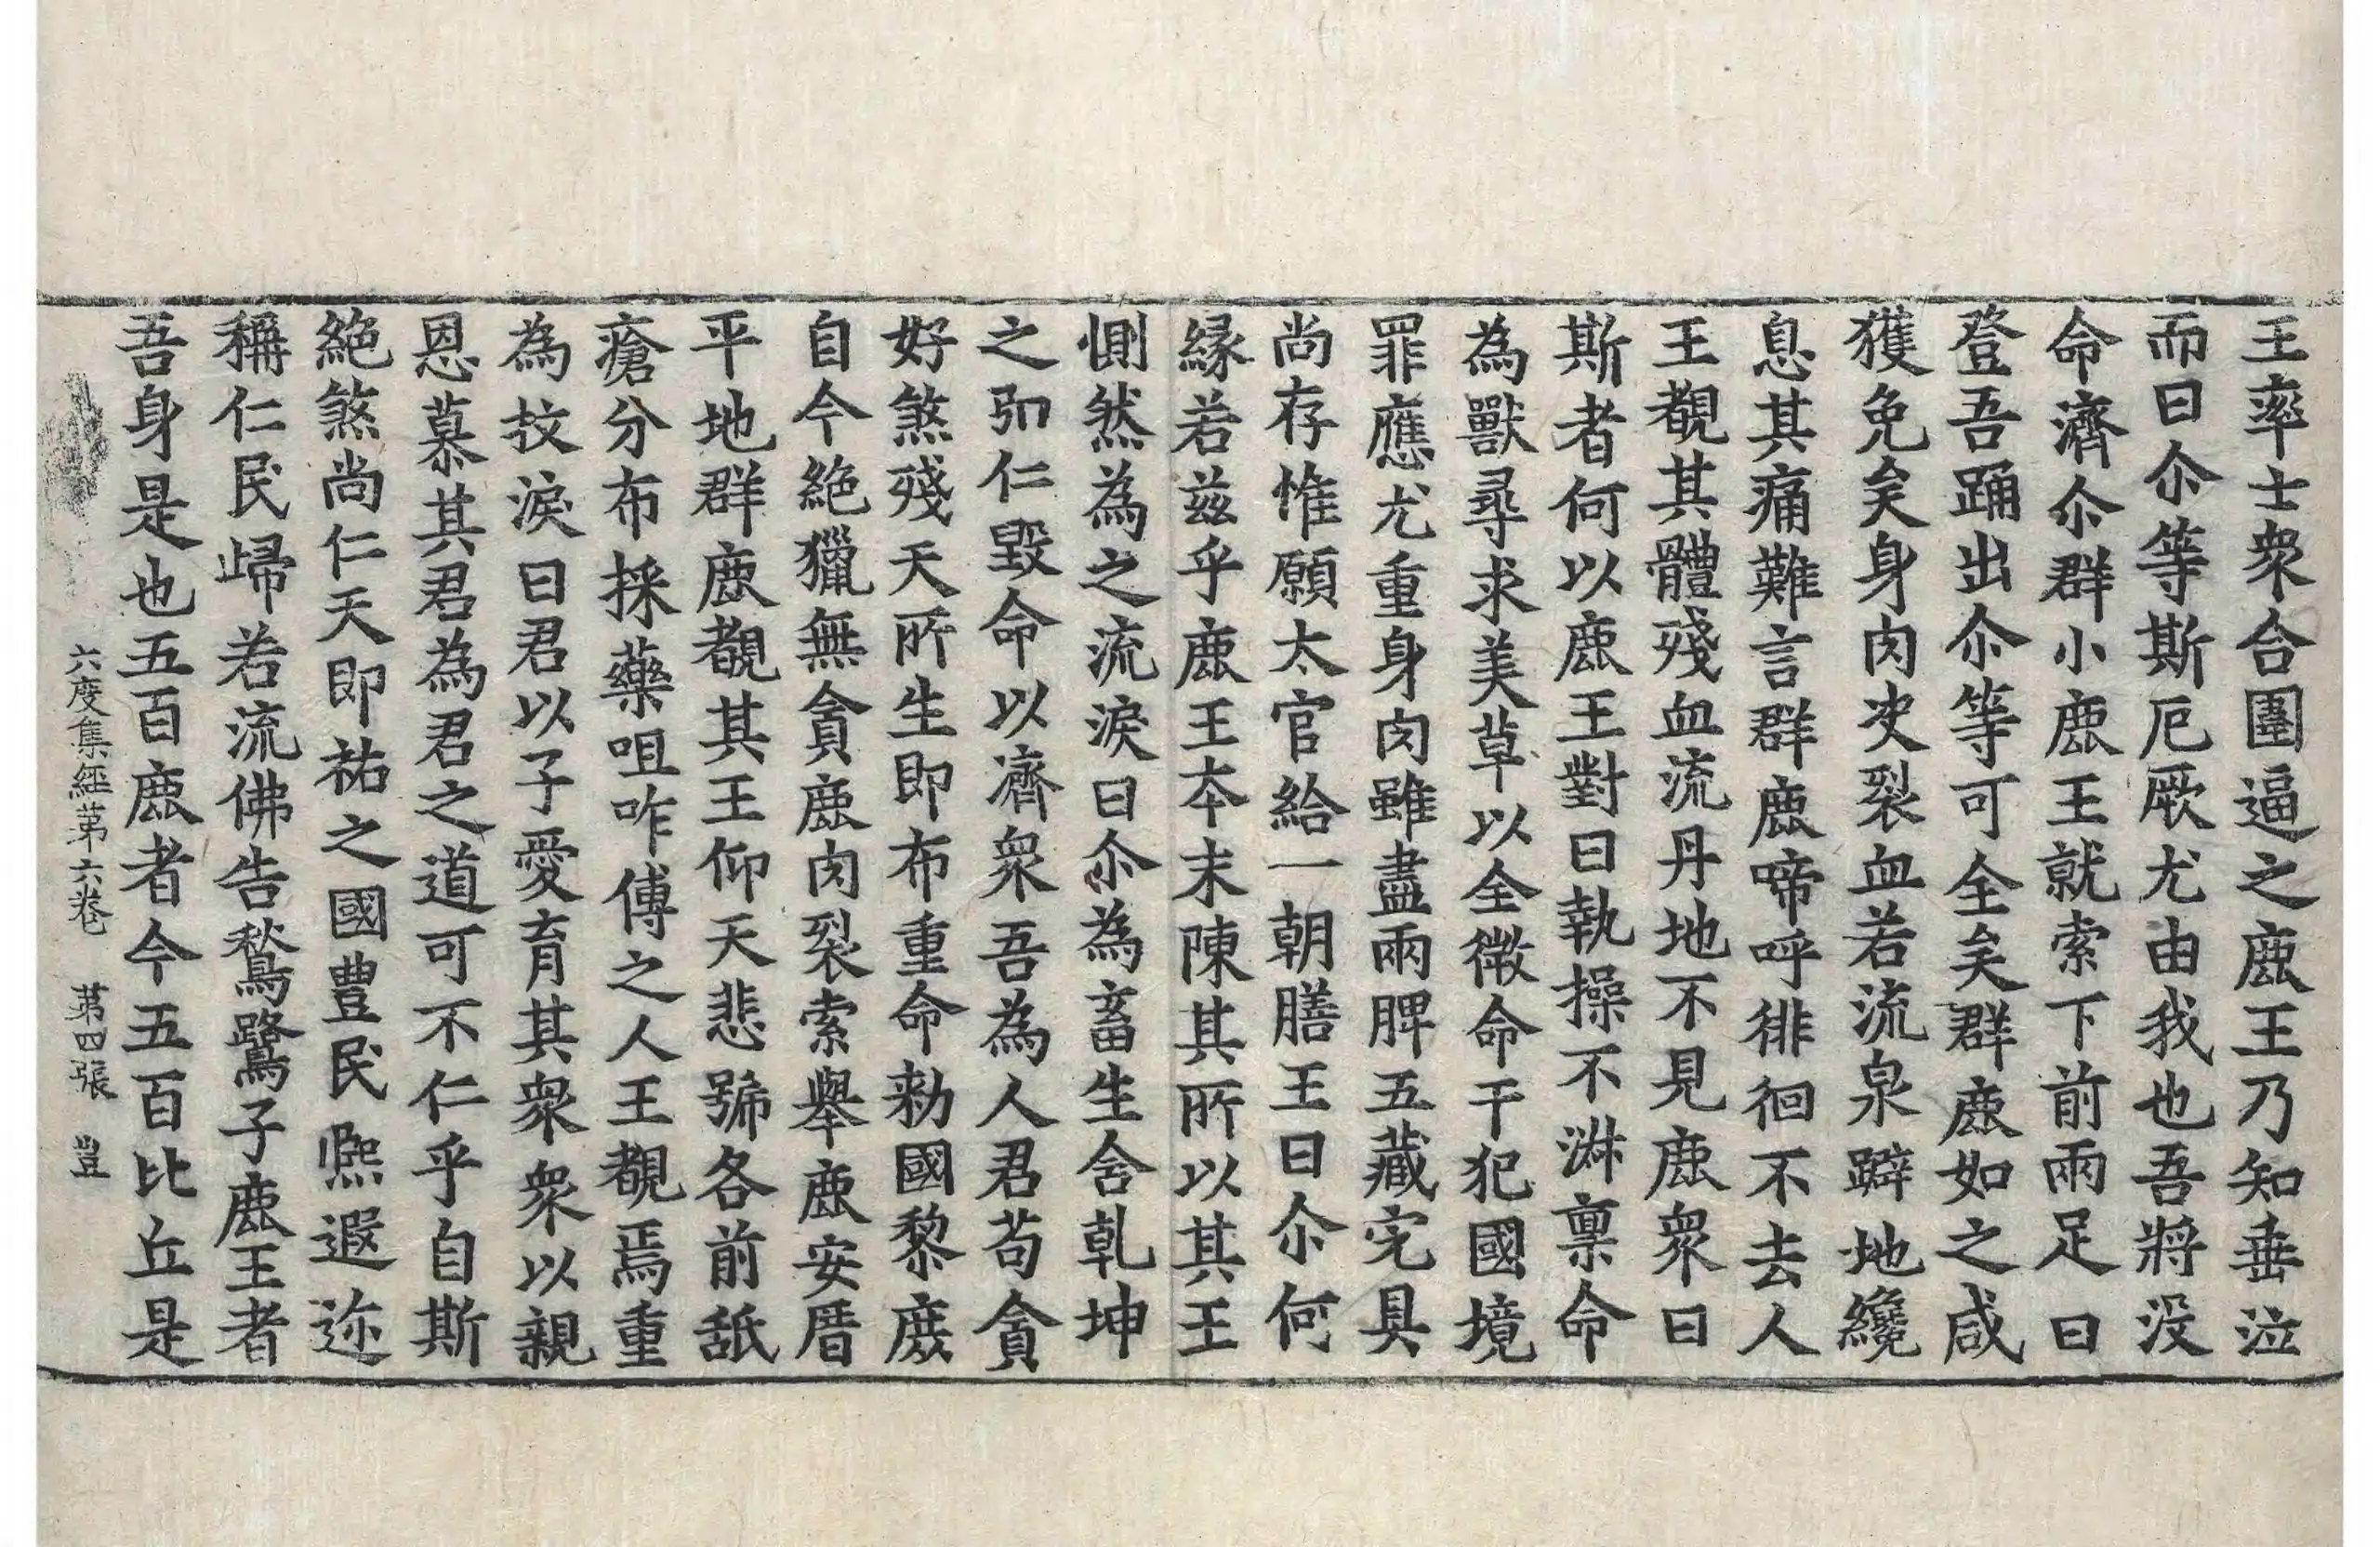 王率士衆合圍逼之鹿王乃知垂泣
而曰尒等斯厄厥尤由我也吾將没
命濟尒群小鹿王就索下前兩足曰
登吾踊出尒等可全矣群鹿如之咸
獲免矣身肉决裂血若流泉躃地纔
息其痛難言群鹿啼呼徘徊不去人
王覩其體殘血流丹地不見鹿衆曰
斯者何以鹿王對曰執操不淋禀命
為獸尋求美草以全微命干犯國境
罪應尤重身肉雖盡兩脾五藏完具
尚存惟願太官給一朝膳王曰尒何
緣若茲乎鹿王夲末陳其所以其王
惻然為之流淚曰尒為畜生含乹坤
之弘仁毀命以濟衆吾為人君苟貪
好煞殘天所生即布重命勑國黎庶
自今絶獵無貪鹿肉裂索舉鹿安厝
平地群鹿覩其王仰天悲號各前舐
瘡分布採藥咀咋傅之人王覩焉重
為抆淚曰君以子愛育其衆衆以親
恩慕其君為君之道可不仁乎自斯
絶煞尚仁天即祐之國豊民熈遐迩
稱仁民歸若流佛告鶖鷺子鹿王者
吾身是也五百鹿者今五百比丘是
六度集經苐六卷 苐四張 豈